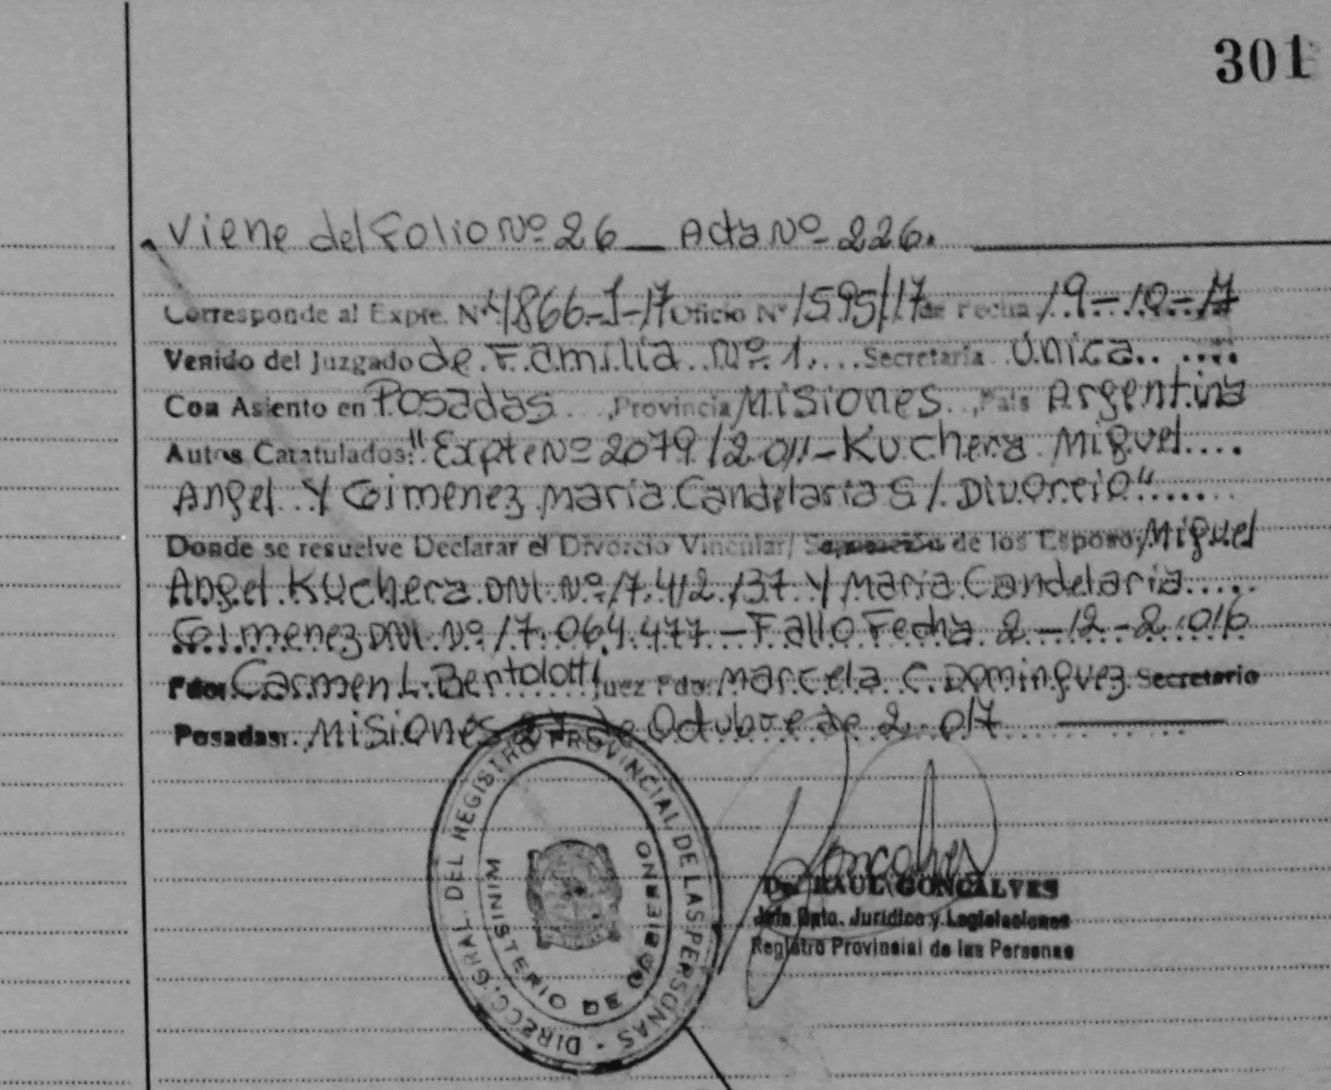 301
Viene del Folio Nº 26 _ Acta Nº 226.
Corresponde al Expte. Nº 4866-J-17 Oficio Nº 1595/17 de Fecha 19-10-17
Venido del Juzgado de Familia Nº 1. Secretaría Única
Con Asiento en Posadas, Provincia Misiones, País Argentina
Autos Caratulados: "Expte Nº 2079/2011- Kuchera Miguel
Angel Y Gimenez Maria Candelaria S/ Divorcio"
Donde se resuelve Declarar el Divorcio Vincular/ de los Esposos Miguel
Angel Kuchera DNI Nº 17.412.137 Y Maria Candelaria
Gimenez DNI Nº 17.064.477 - Fallo Fecha 2-12-2016
Fdo: Carmen L. Bertolotti Juez Fdo: Marcela C. Dominguez Secretario
Posadas: Misiones de Octubre de 2017
DIRECC. GRAL. DEL REGISTRO PROVINCIAL DE LAS PERSONAS
MINISTERIO DE GOBIERNO
Goncalves
Dr. RAUL GONCALVES
Jefe Dpto. Jurídico y Legislaciones
Registro Provincial de las Personas